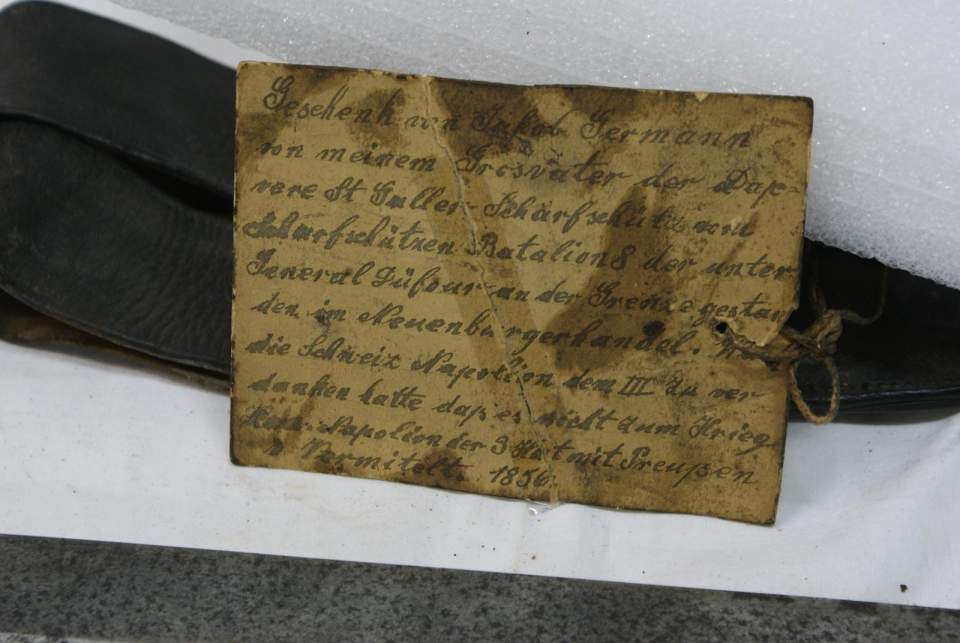 Geschenk von Jakob Germann
von meinem Grosvater der Dap-
vere St Galler Scharfschütz vom
Scharfschützen Batalion 8 der unter
General Düfour an der Grenze gestan
den im Neuenburgerhandel.
die Schweiz Napolion dem III zu ver-
danken hatte daß es nicht zum Krieg
Kam. Napolion der 3 Hat mit Preußen
Vermitelt. 1856.